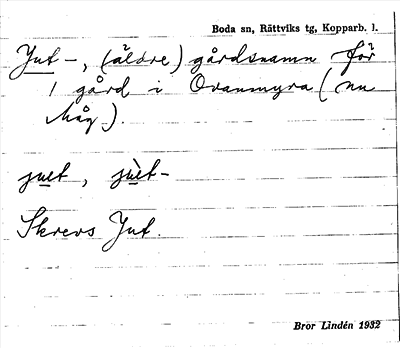 Boda sn, Rättviks tg, Kopparb. l.
Jut-, (äldre) gårdsnamn för
1 gård i Ovanmyra (nu
Måg).
jut, jùt-
Skrevs Jut.
Bror Lindén 1932